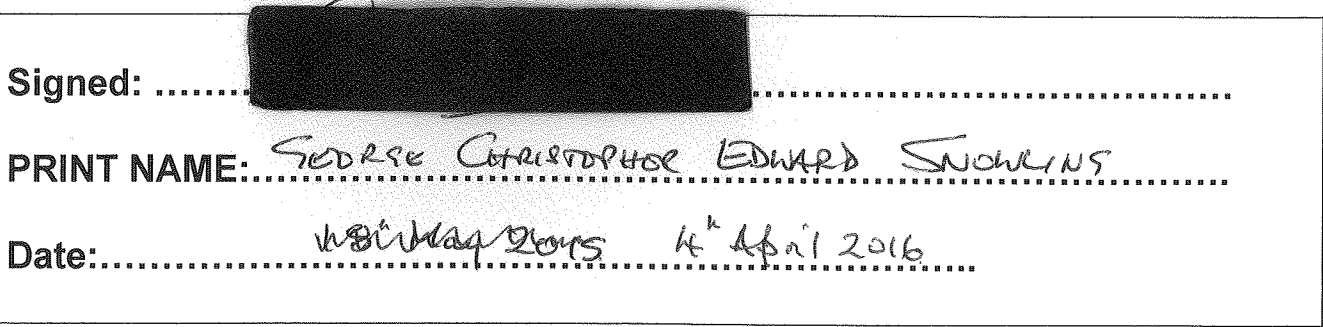 Signed:
PRINT NAME: GEORGE CHRISTOPHER EDWARD SNOWLING
Date: 4th April 2016